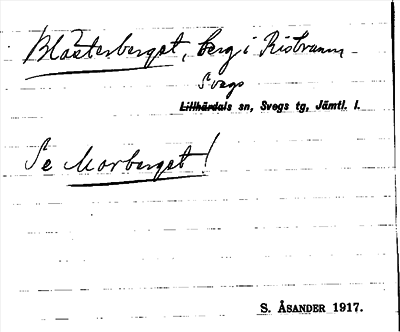 Blåsterberget, berg i Risbrunn
Svegs
Lillhärdals sn, Svegs tg, Jämtl. l.
Se Morberget!
S. ÅSANDER 1917.